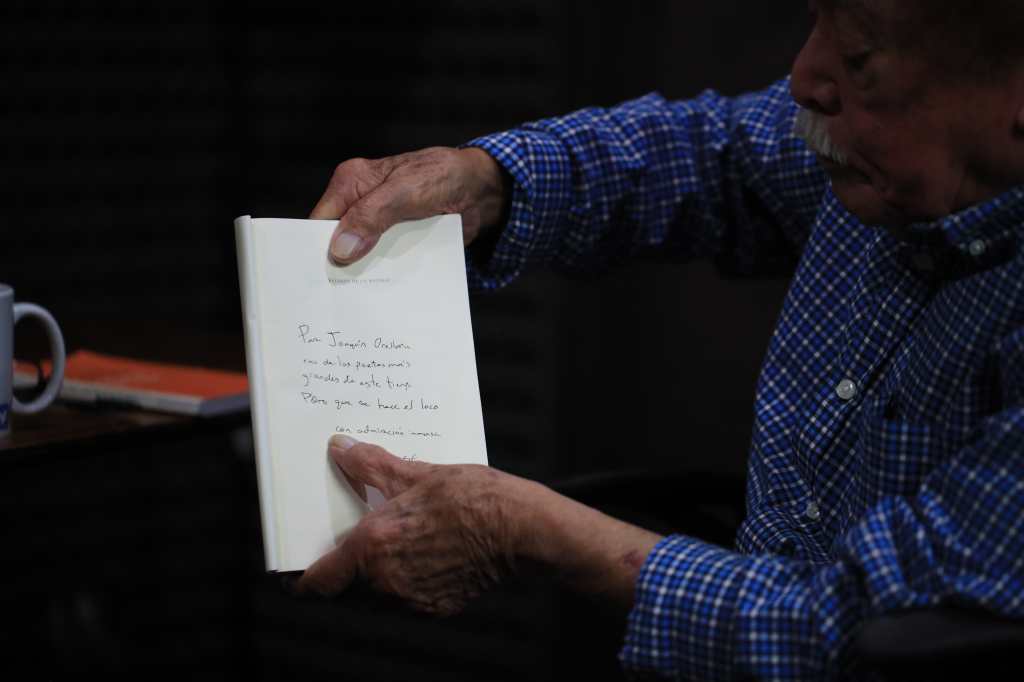 Para Joaquín Orellana
uno de los poetas más
grandes de este tiempo
Pero que se hace el loco
con admiración inmensa